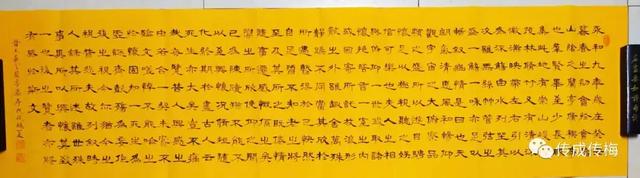 永和九年歲在癸丑
暮春之初會於會稽
山陰之蘭亭修禊事
也群賢畢至少長咸
集此地有崇山峻領
茂林修竹又有清流
激湍映帶左右引以
為流觴曲水列坐其
次雖無絲竹管弦之
盛一觴一詠亦足以
暢敘幽情是日也天
朗氣清惠風和暢仰
觀宇宙之大俯察品
類之盛所以遊目騁
懷足以極視聽之娛
信可樂也夫人之相
與俯仰一世或取諸
懷抱悟言一室之內
或因寄所託放浪形
骸之外雖趣舍萬殊
靜躁不同當其欣於
所遇暫得於己快然
自足不知老之將至
及其所之既倦情
隨事遷感慨係之矣
向之所欣俛仰之
間已為陳跡猶不能不
以之興懷況修短隨
化終期於盡古人云
死生亦大矣豈不痛
哉每覽昔人興感之
由若合一契未嘗不
臨文嗟悼不能喻之
於懷固知一死生為
虛誕齊彭殤為妄作
後之視今亦猶今之
視昔悲夫故列敘時
人錄其所述雖世殊
事異所以興懷其致
一也後之覽者亦將
有感於斯文
传成传梅